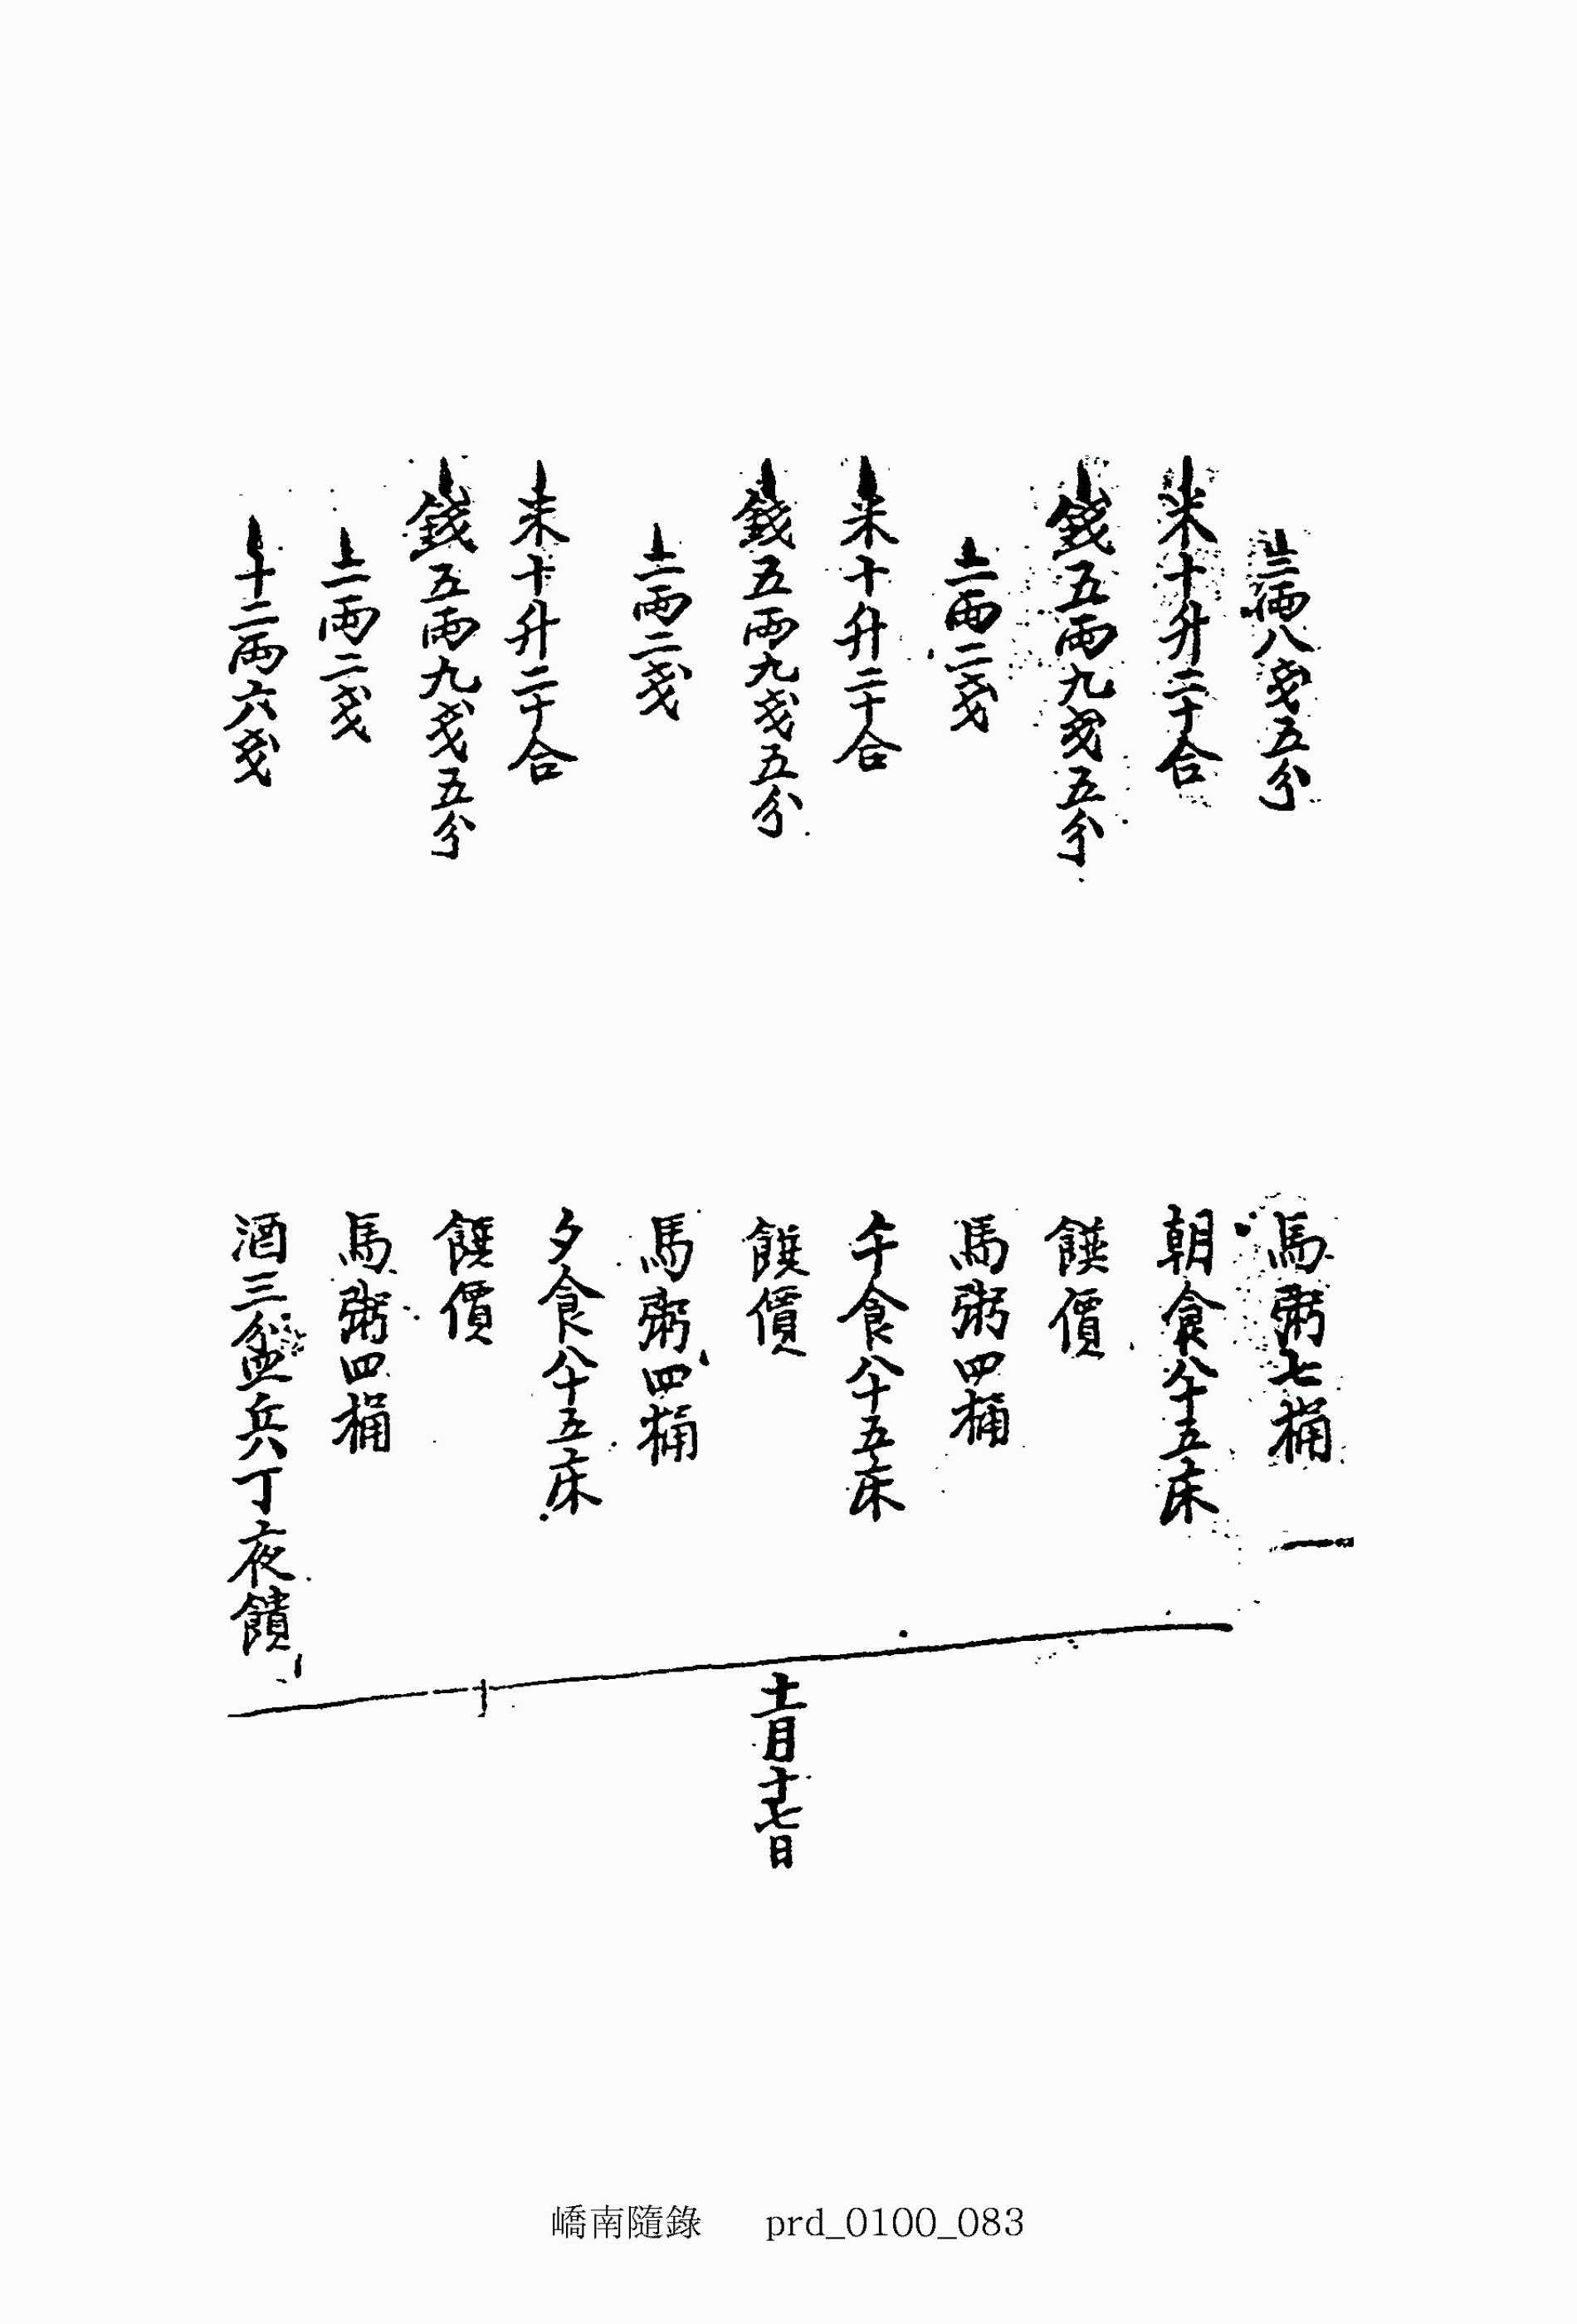 二兩八戔五分 馬粥七桶
米十升二十合 朝食八十五床
錢五兩九戔五分 饌價
一兩二戔 馬粥四桶
米十升二十合 午食八十五床
錢五兩九戔五分 饌價
一兩二戔 馬粥四桶
米十升二十合 夕食八十五床
錢五兩九戔五分 饌價
一兩二戔 馬粥四桶
十二兩六戔 酒三盆兵丁夜饋
十一月十七日
嶠南隨錄 prd_0100_083